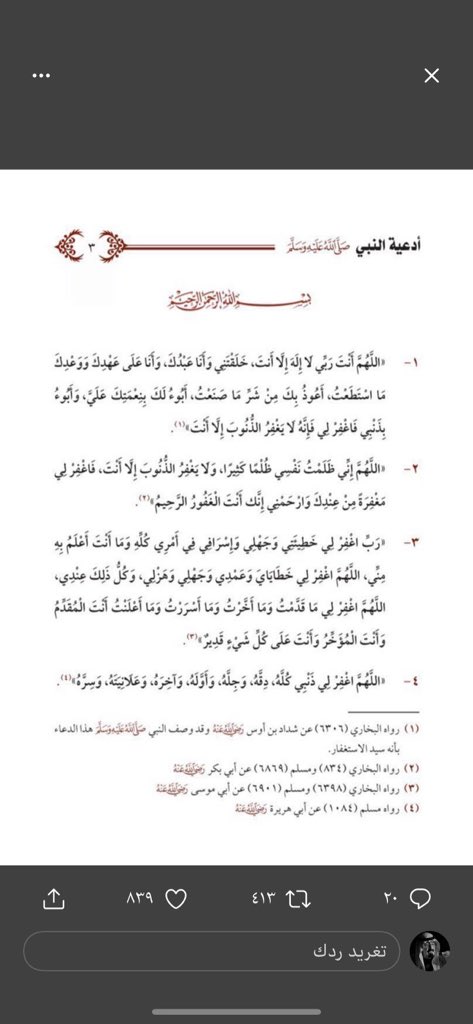 أدعية النبي صَلَّى اللَّهُ عَلَيْهِ وَسَلَّمَ
٣
بِسْمِ اللَّهِ الرَّحْمَنِ الرَّحِيمِ
١- «اللَّهُمَّ أَنْتَ رَبِّي لَا إِلَهَ إِلَّا أنتَ، خَلَقْتَنِي وَأَنَا عَبْدُكَ، وَأَنَا عَلَى عَهْدِكَ وَوَعْدِكَ
مَا اسْتَطَعْتُ، أَعُوذُ بِكَ مِنْ شَرِّ مَا صَنَعْتُ، أَبُوءُ لَكَ بِنِعْمَتِكَ عَلَيَّ، وَأَبُوءُ
بِذَنْبِي فَاغْفِرْ لِي فَإِنَّهُ لَا يَغْفِرُ الذُّنُوبَ إِلَّا أَنْتَ»(١).
٢- «اللَّهُمَّ إِنِّي ظَلَمْتُ نَفْسِي ظُلْمًا كَثِيرًا، وَلَا يَغْفِرُ الذُّنُوبَ إِلَّا أَنْتَ، فَاغْفِرْ لِي
مَغْفِرَةً مِنْ عِنْدِكَ وَارْحَمْنِي إِنَّك أَنْتَ الْغَفُورُ الرَّحِيمُ»(٢).
٣- «رَبِّ اغْفِرْ لِي خَطِيئَتِي وَجَهْلِي وَإِسْرَافِي فِي أَمْرِي كُلِّهِ وَمَا أَنْتَ أَعْلَمُ بِهِ
مِنِّي، اللَّهُمَّ اغْفِرْ لِي خَطَايَايَ وَعَمْدِي وَجَهْلِي وَهَزْلِي، وَكُلُّ ذَلِكَ عِنْدِي،
اللَّهُمَّ اغْفِرْ لِي مَا قَدَّمْتُ وَمَا أَخَّرْتُ وَمَا أَسْرَرْتُ وَمَا أَعْلَنْتُ أَنْتَ الْمُقَدِّمُ
وَأَنْتَ الْمُؤَخِّرُ وَأَنْتَ عَلَى كُلِّ شَيْءٍ قَدِيرٌ»(٣).
٤- «اللَّهُمَّ اغْفِرْ لِي ذَنْبِي كُلَّهُ، دِقَّهُ، وَجِلَّهُ، وَأَوَّلَهُ، وَآخِرَهُ، وَعَلَانِيَتَهُ، وَسِرَّهُ»(٤).
(١) رواه البخاري (٦٣٠٦) عن شداد بن أوس رَضِيَ اللَّهُ عَنْهُ وقد وصف النبي صَلَّى اللَّهُ عَلَيْهِ وَسَلَّمَ هذا الدعاء
بأنه سيد الاستغفار.
(٢) رواه البخاري (٨٣٤) ومسلم (٦٨٦٩) عن أبي بكر رَضِيَ اللَّهُ عَنْهُ
(٣) رواه البخاري (٦٣٩٨) ومسلم (٦٩٠١) عن أبي موسى رَضِيَ اللَّهُ عَنْهُ
(٤) رواه مسلم (١٠٨٤) عن أبي هريرة رَضِيَ اللَّهُ عَنْهُ
٢٠ ٤١٣ ٨٣٩
تغريد ردك